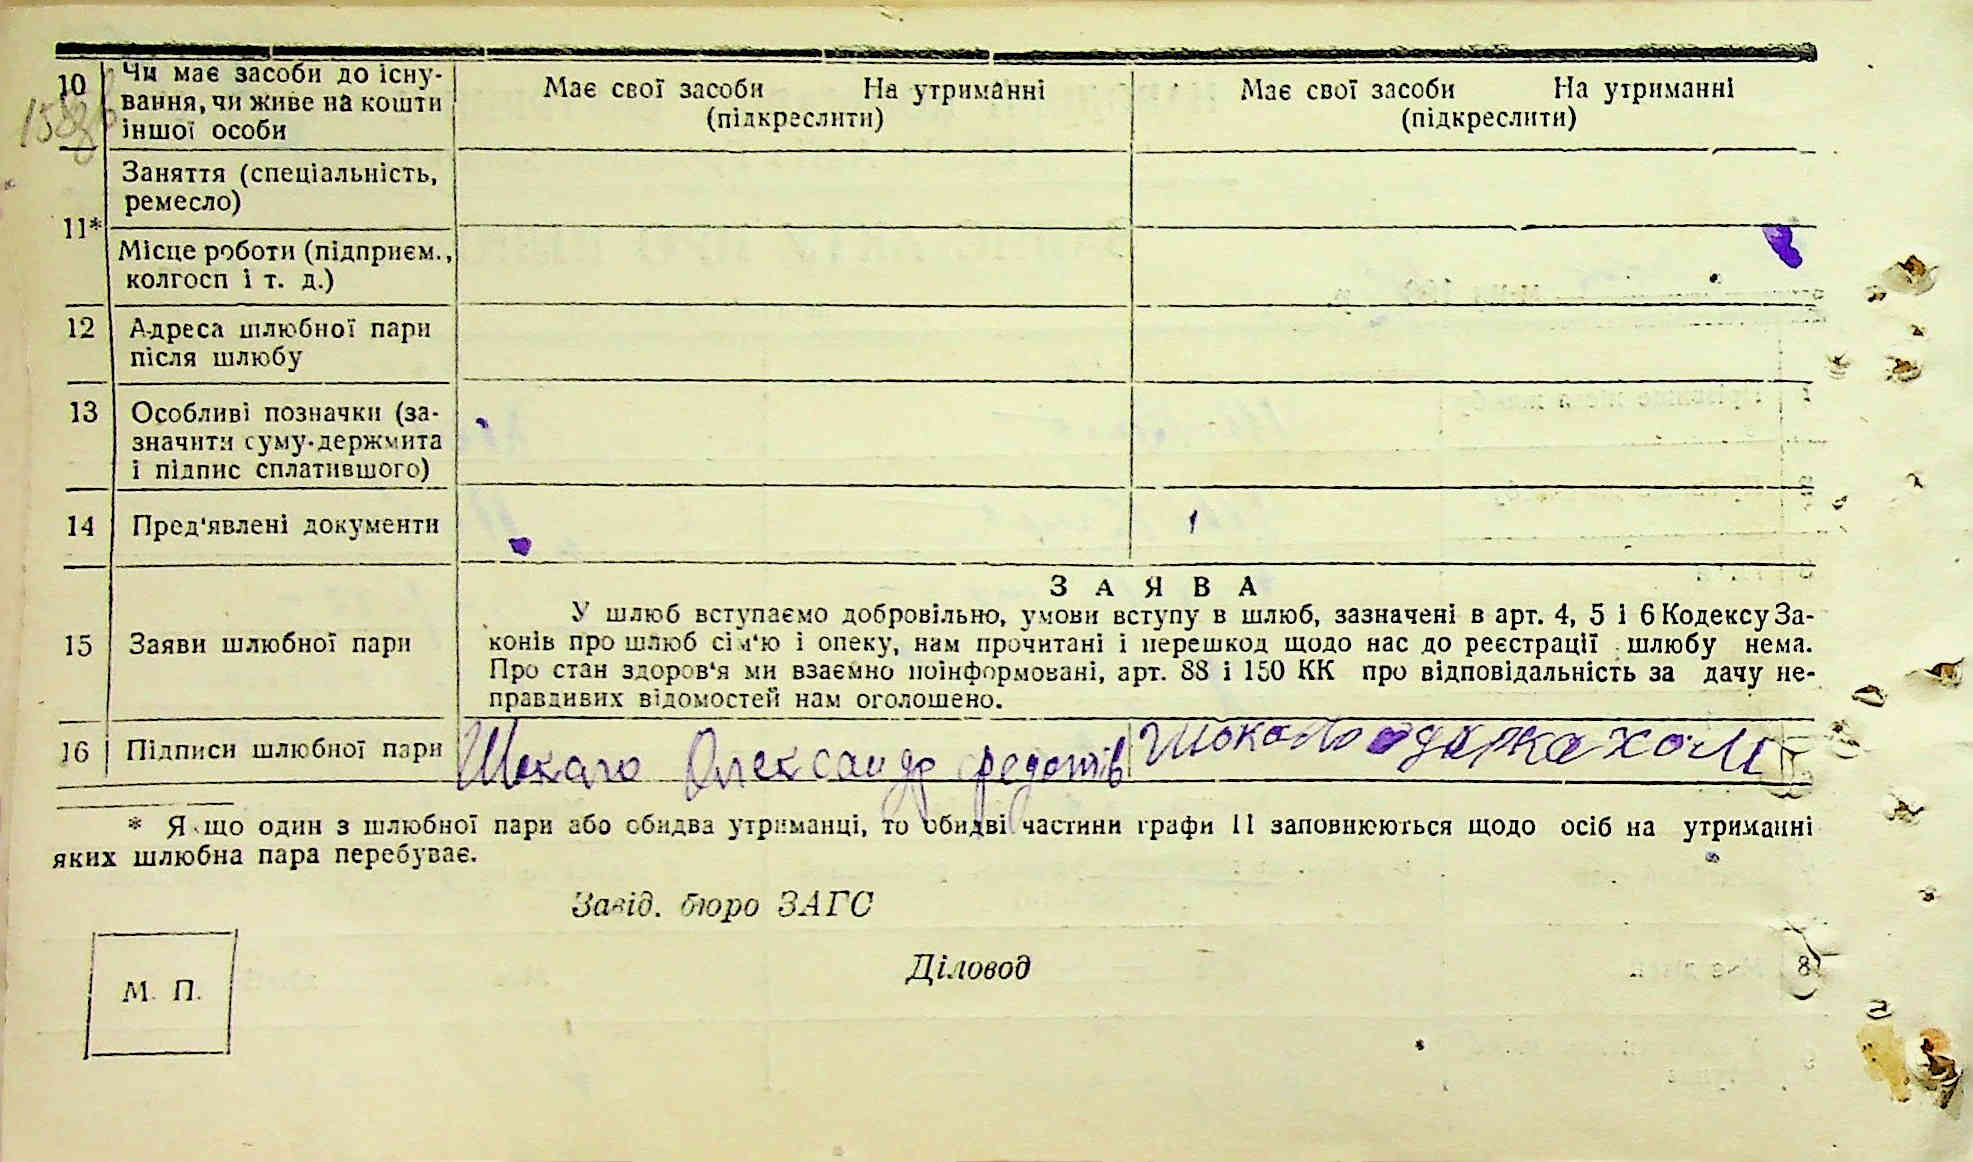 10 Чи має засоби до існу-
вання, чи живе на кошти
іншої особи
Має свої засоби На утриманні
(підкреслити)
Має свої засоби На утриманні
(підкреслити)
11*
Заняття (спеціальність,
ремесло)
Місце роботи (підприєм.,
колгосп і т. д.)
12 Адреса шлюбної пари
після шлюбу
13 Особливі позначки (за-
значити суму держмита
і підпис сплатившого)
14 Пред'явлені документи
ЗАЯВА
15 Заяви шлюбної пари
У шлюб вступаємо добровільно, умови вступу в шлюб, зазначені в арт. 4, 5 і 6 Кодексу За-
конів про шлюб сім'ю і опеку, нам прочитані і перешкод щодо нас до реєстрації шлюбу нема.
Про стан здоров'я ми взаємно поінформовані, арт. 88 і 150 КК про відповідальність за дачу не-
правдивих відомостей нам оголошено.
16 Підписи шлюбної пари
Шокало Олександр Федотів
Шокало одарка хом
* Якщо один з шлюбної пари або обидва утриманці, то обидві частини графи 11 заповнюються щодо осіб на утриманні
яких шлюбна пара перебуває.
Завід. бюро ЗАГС
Діловод
М. П.
8